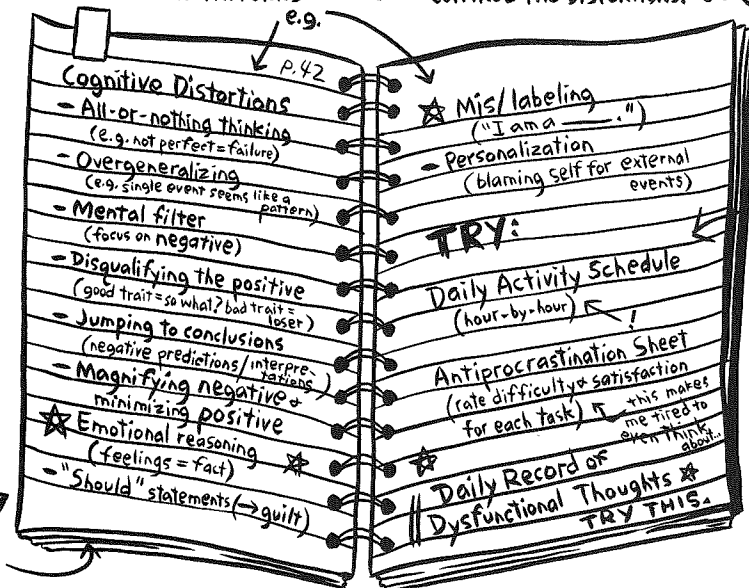 e.g.
p.42
Cognitive Distortions
- All-or-nothing thinking
(e.g. not perfect = failure)
- Overgeneralizing
(e.g. single event seems like a
pattern)
- Mental filter
(focus on negative)
- Disqualifying the positive
(good trait = so what? bad trait =
loser)
- Jumping to conclusions
(negative predictions/interpre-
tations)
- Magnifying negative &
minimizing positive
☆ Emotional reasoning
(feelings = fact) ☆
- "Should" statements (→ guilt)
☆ Mis/labeling
("I am a ___.")
- Personalization
(blaming self for external
events)
TRY:
Daily Activity Schedule
(hour-by-hour)
!
Antiprocrastination Sheet
(rate difficulty & satisfaction
for each task)
this makes
me tired to
even think
about...
☆
Daily Record of
Dysfunctional Thoughts ☆
TRY THIS.